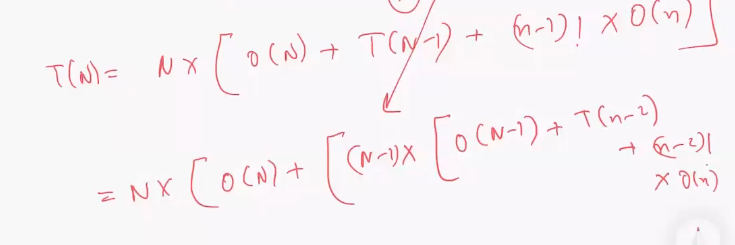 T(N) = N x [ O(N) + T(N-1) + (n-1)! x O(n) ]
= N x [ O(N) + [ (N-1) x [ O(N-1) + T(n-2)
+ (n-2)!
x O(n)